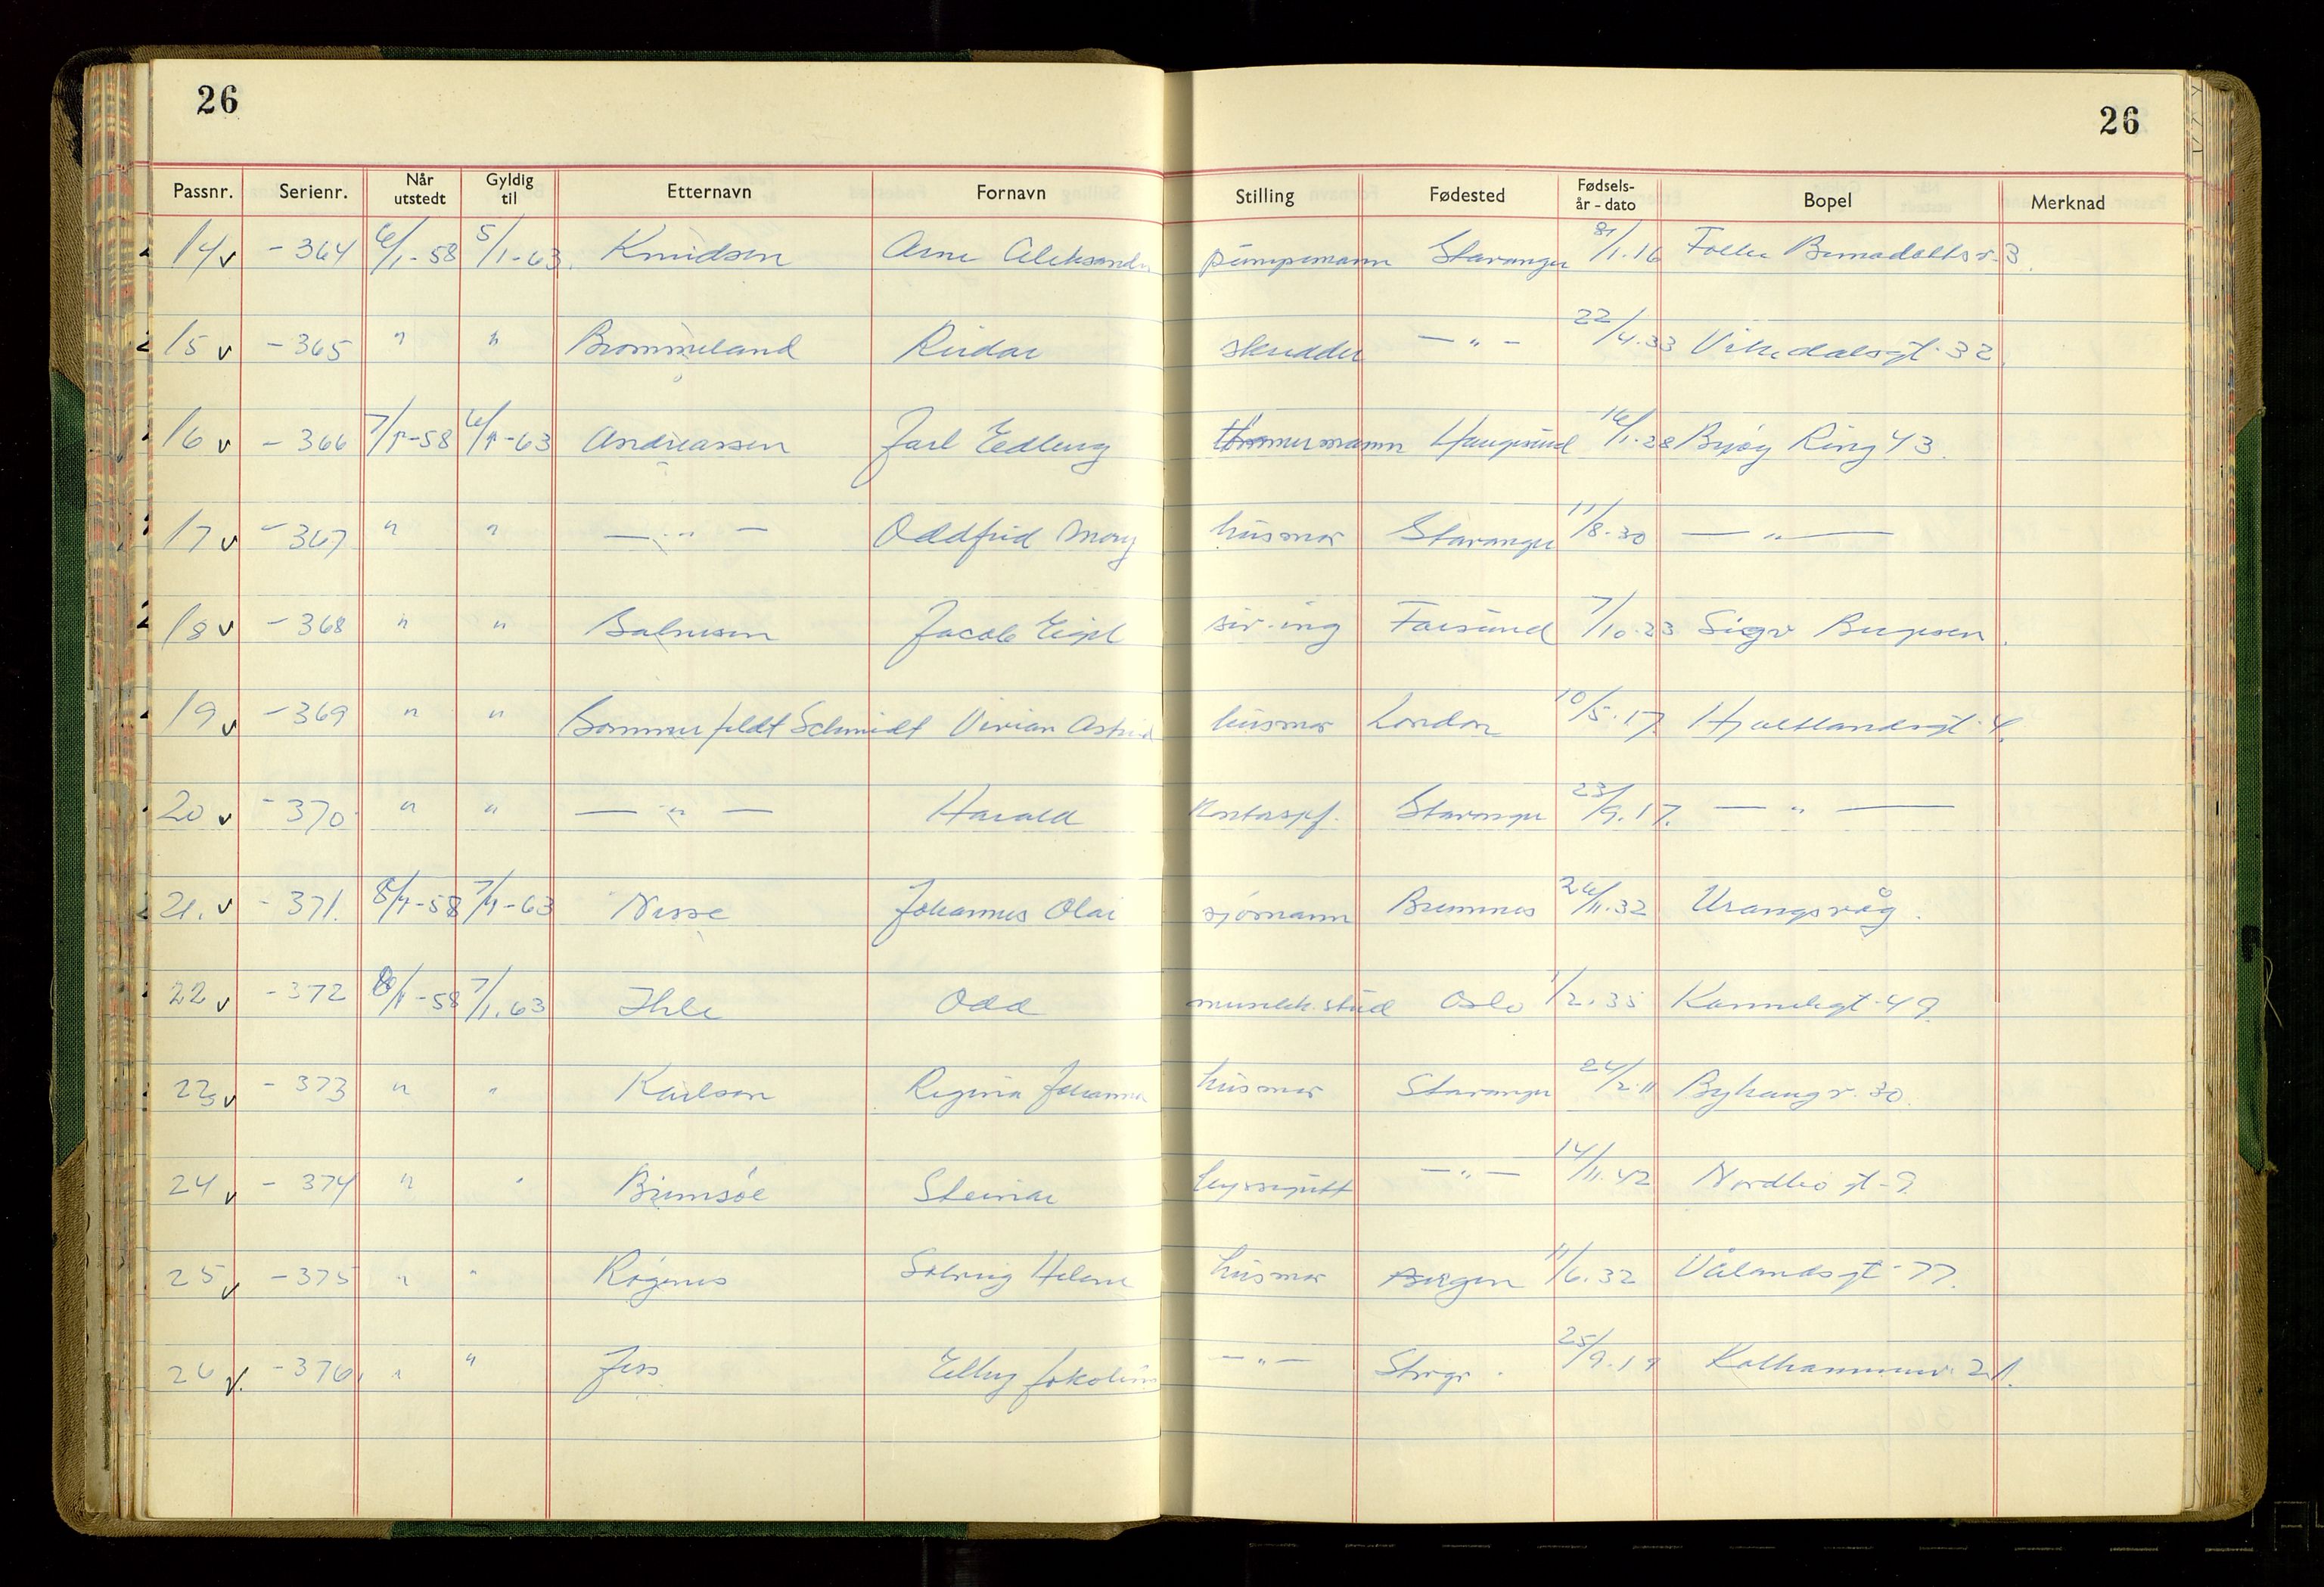 26 26
Passnr. Serienr. Når utstedt Gyldig til Etternavn Fornavn Stilling Fødested Fødsels- år - dato Bopel Merknad
14 v - 364 6/1-58 5/1-63. Knudsen Arne Aleksander pumpemann Stavanger 8/1.16 Folke Bernadottesv. 3.
15 v - 365 " " Brommeland Reidar skredder — " — 22/4.33 Vikedalsgt. 32.
16 v - 366 7/1-58 6/1-63 Andreassen Jarl Edberg tømmermann Haugesund 16/1.28 Byøy Ring 43.
17 v - 367 " " — " — Oddfrid Mary husmor Stavanger 11/8.30 — " —
18 v - 368 " " Salvesen Jacob Eigil siv. ing Farsund 7/10.23 Sigv
19 v - 369 " " Sommerfeldt Schmidt Vivian Astrid husmor London 10/5.17. Hjaltlandsgt. 4.
20 v - 370 " " — " — Harald Stavanger 23/9.17. — " —
21. v - 371. 8/1-58 7/1-63 Nesse Johannes Olai sjømann Bremnes 26/11.32 Urangsvåg.
22 v - 372 8/1-58 7/1.63 Ihle Odd musikk. stud Oslo 1/2.35 Kannikgt. 49.
23 v - 373 " " Karlson Regina Johanna husmor Stavanger 24/2.11 Byhaugv. 30.
24 v - 374 " " Brimsøe Steinar byssegutt — " — 14/11.42 Nordbøgt. 9.
25 v - 375 " " Røgenes Solveig Helene husmor Bergen 11/6.32 Vålandsgt. 77.
26 v. - 376. " " Jess — " — Stvgr. 25/9.19 Kolhammerv. 21.